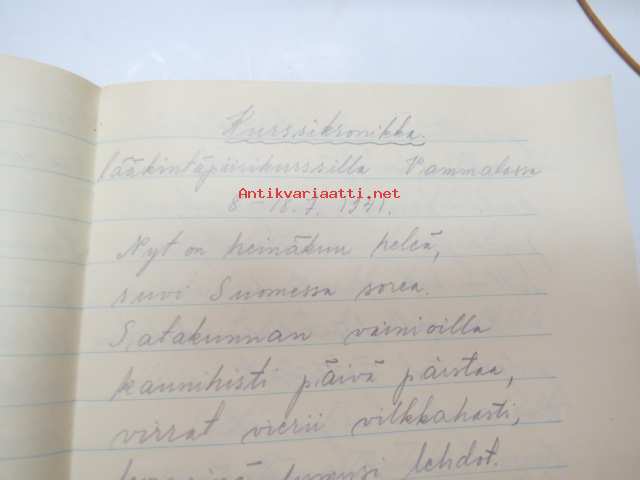 Kurssikronikka.
lääkintäpäisikurssilla Vammalassa
Antikvariaatti.net
8-18.7. 1941.
Nyt on heinäkuu heleä,
suvi Suomessa sorea.
Satakunnan vainioilla
kaunihisti päivä paistaa,
virrat vierii vilkkahasti,
lehdot.